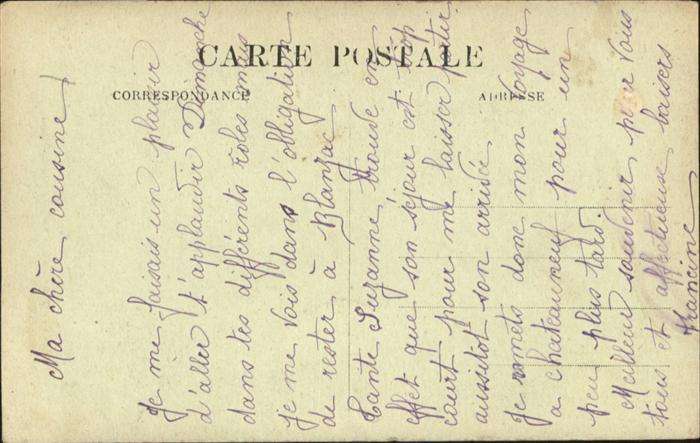 CARTE POSTALE
CORRESPONDANCE
ADRESSE
Ma chère cousine
Je me faisais un plaisir
d'aller t'applaudir Dimanche
dans tes différents rôles mais
je me vois dans l'obligation
de rester à Blanzac
Tante Suzanne trouve en
effet que son séjour est trop
court pour me laisser partir
aussitôt son arrivée
Je remets donc mon voyage
a chateauneuf pour un
peu plus tard.
Meilleur souvenir pour vous
tous et affectueux baisers